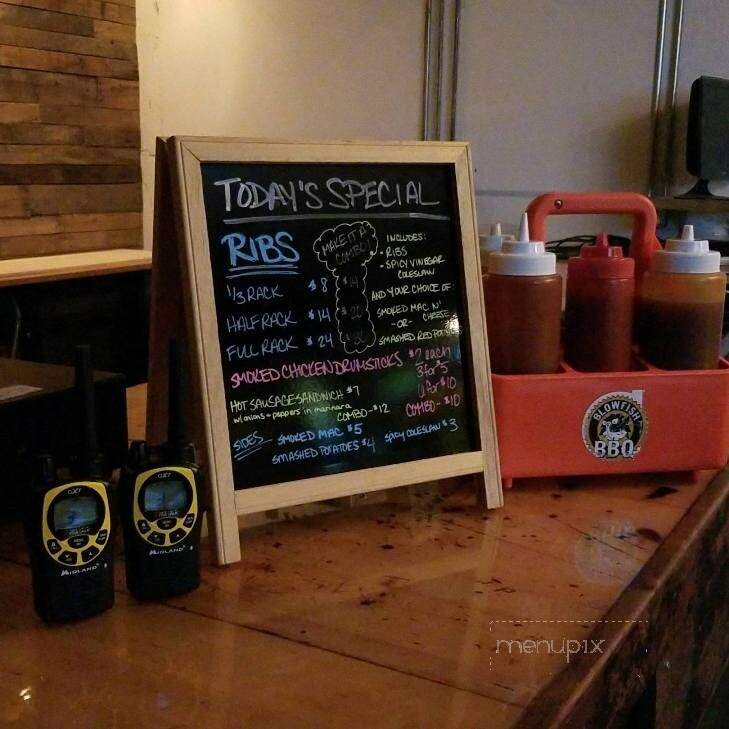 TODAY'S SPECIAL
RIBS
MAKE IT A
COMBO!
INCLUDES:
- RIBS
- SPICY VINEGAR
COLESLAW
1/3 RACK $8 $14
AND YOUR CHOICE OF
HALF RACK $14 $20
SMOKED MAC N'
CHEESE
-OR-
FULL RACK $24
SMASHED RED
SMOKED CHICKEN DRUMSTICKS $2 each
3 for $5
for $10
HOT SAUSAGE SANDWICH $7
w/onions + peppers in marinara
COMBO - $12
COMBO - $10
SIDES
SMOKED MAC $5
SMASHED POTATOES $4
SPICY COLESLAW $3
BLOWFISH
BBQ
GXT
MIDLAND
GXT
MIDLAND
menupix